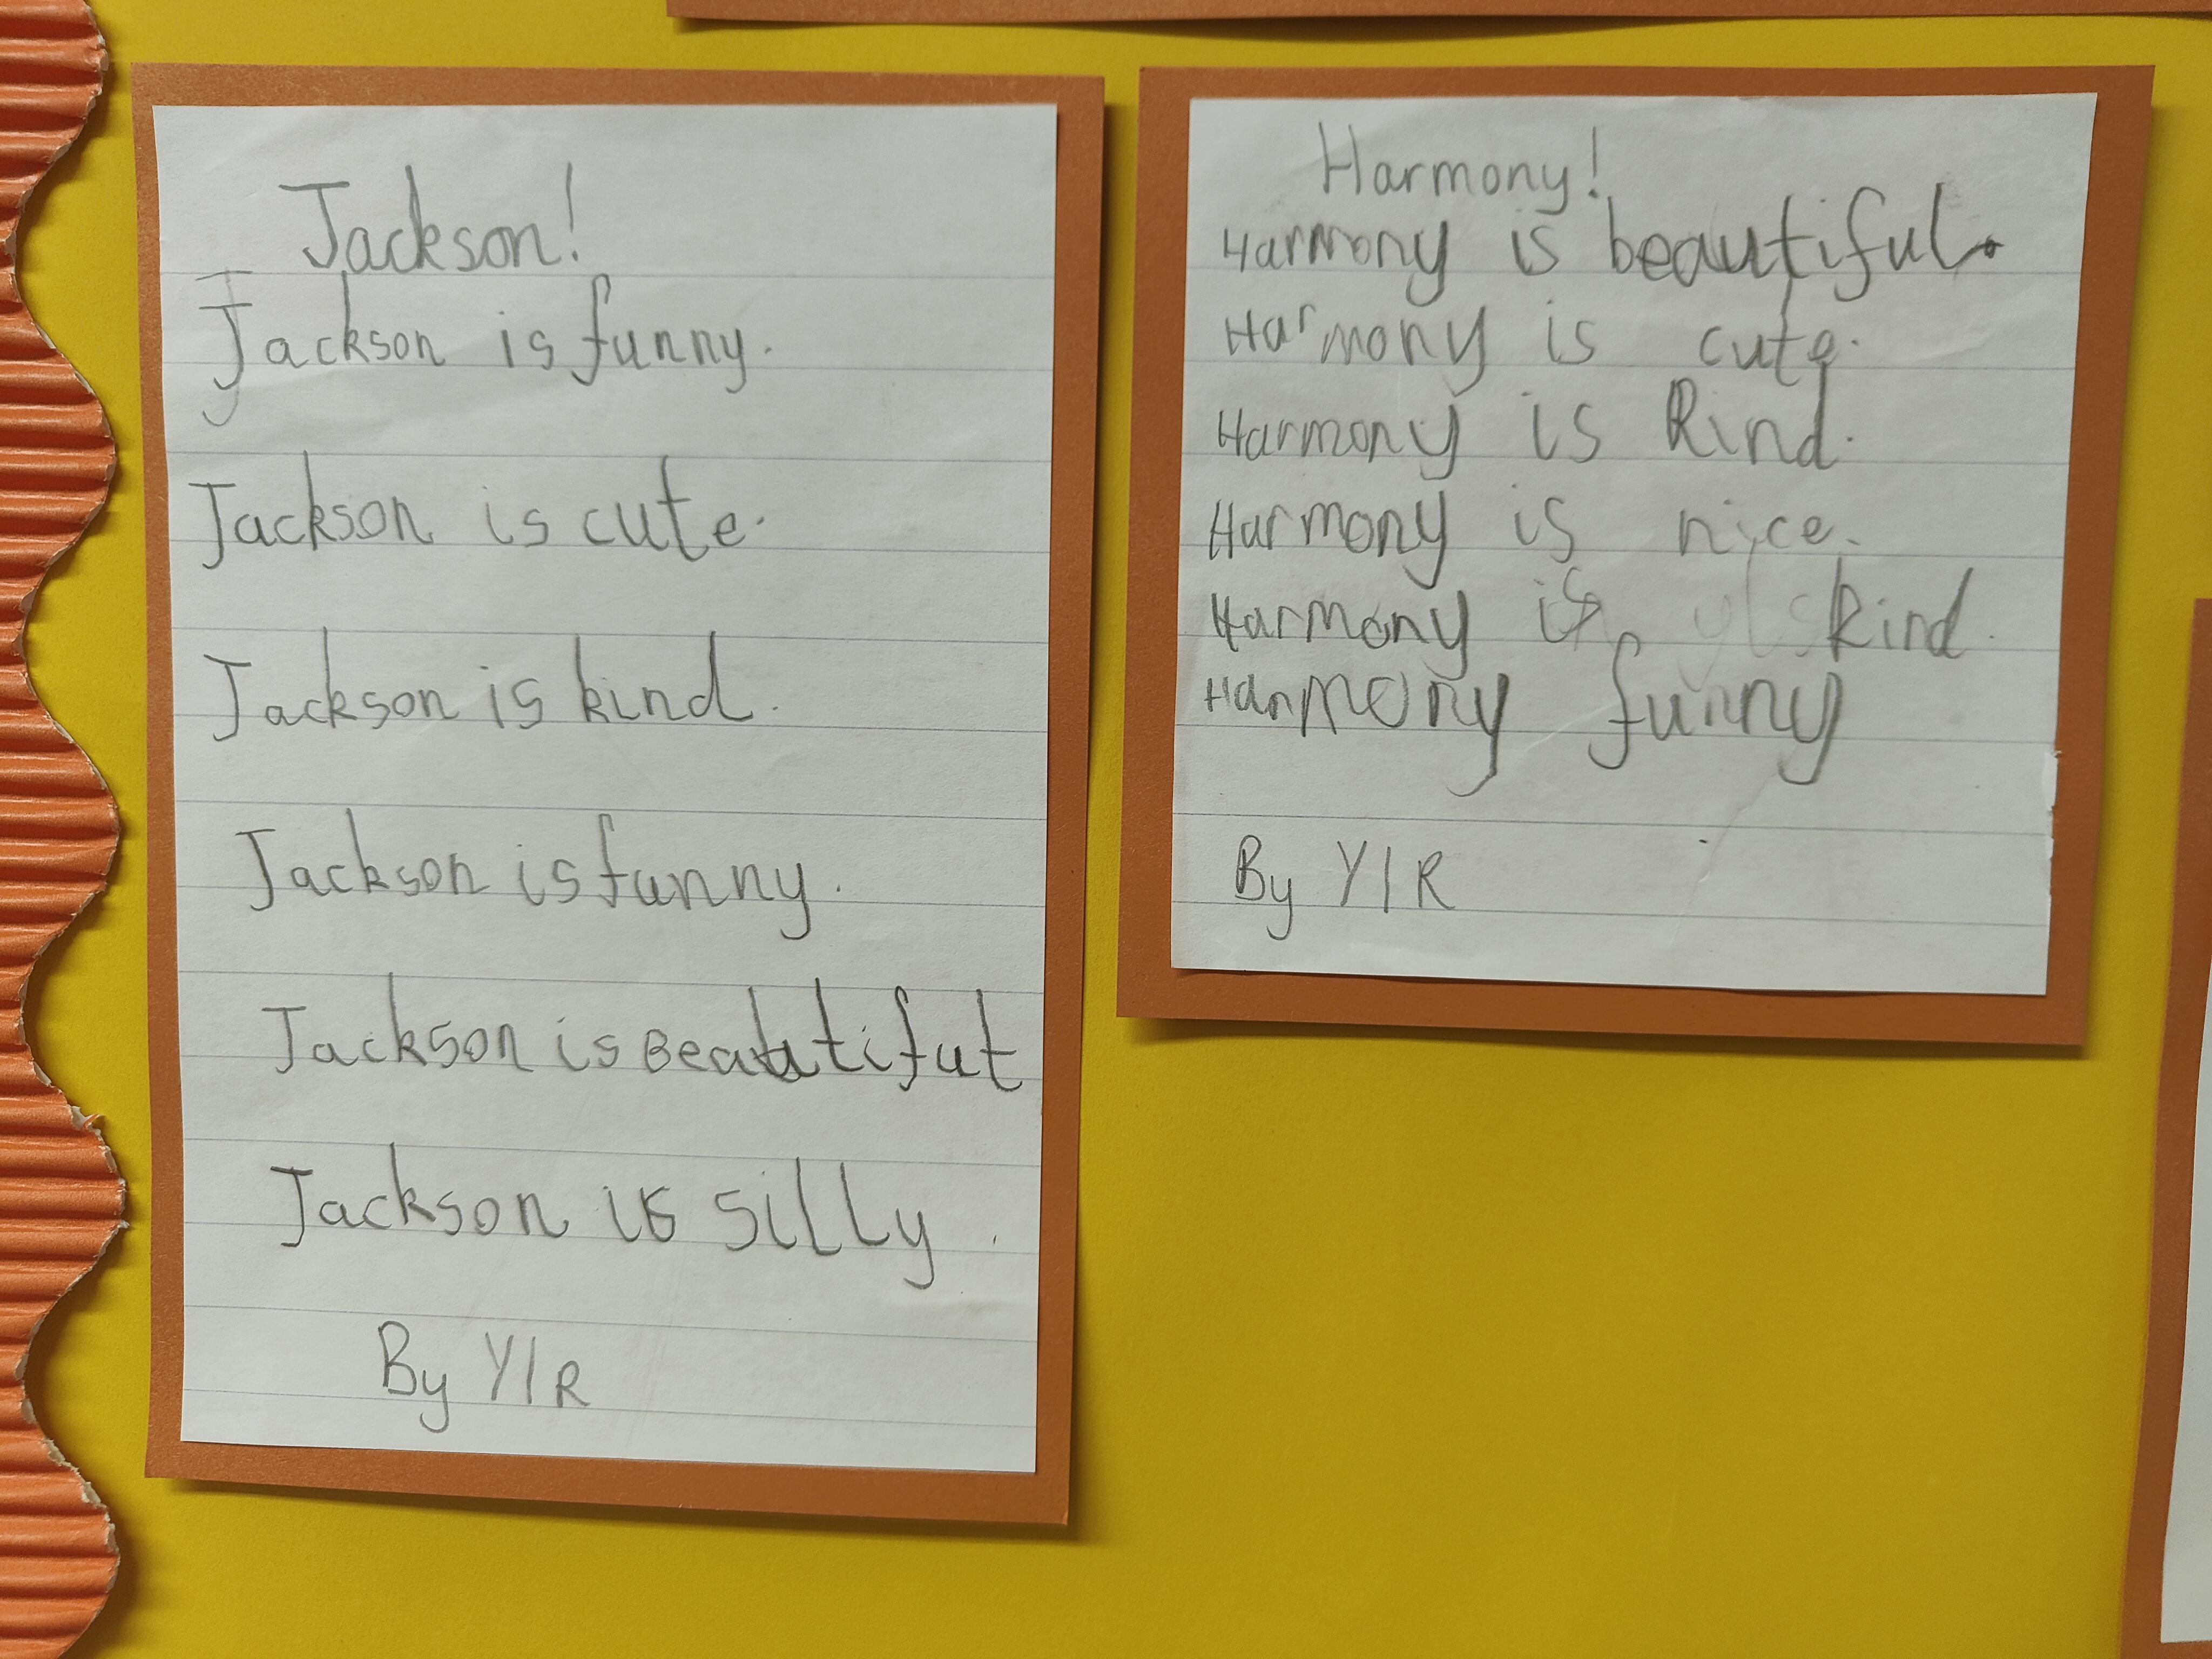 Jackson!
Jackson is funny.
Jackson is cute.
Jackson is kind.
Jackson is funny.
Jackson is Beautiful
Jackson is silly.
By Y1R
Harmony!
Harmony is beautiful.
Harmony is cute.
Harmony is kind.
Harmony is nice.
Harmony is kind.
Harmony funny
By Y1R